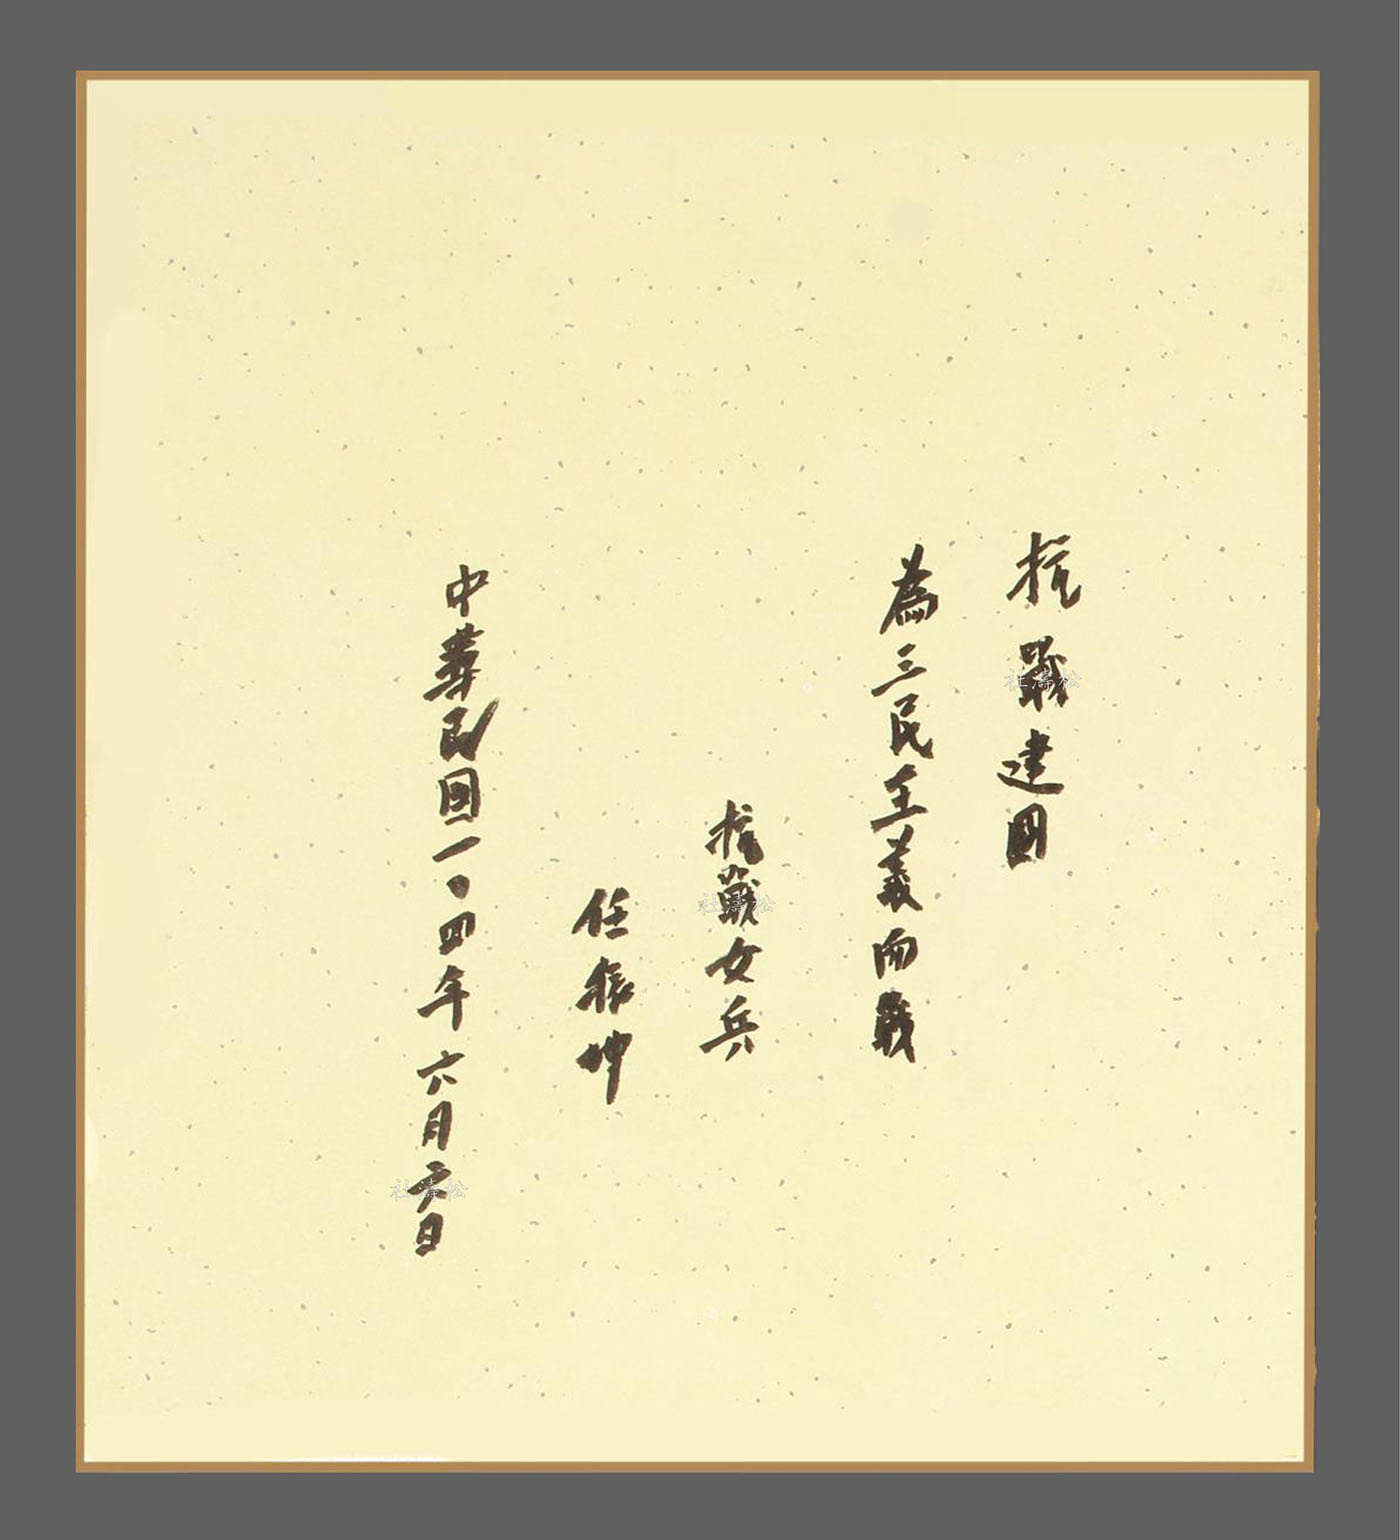 抗戰建國
為三民主義而戰
抗戰女兵
任振坤
中華民國一〇四年六月六日
松濤社
松濤社
松濤社